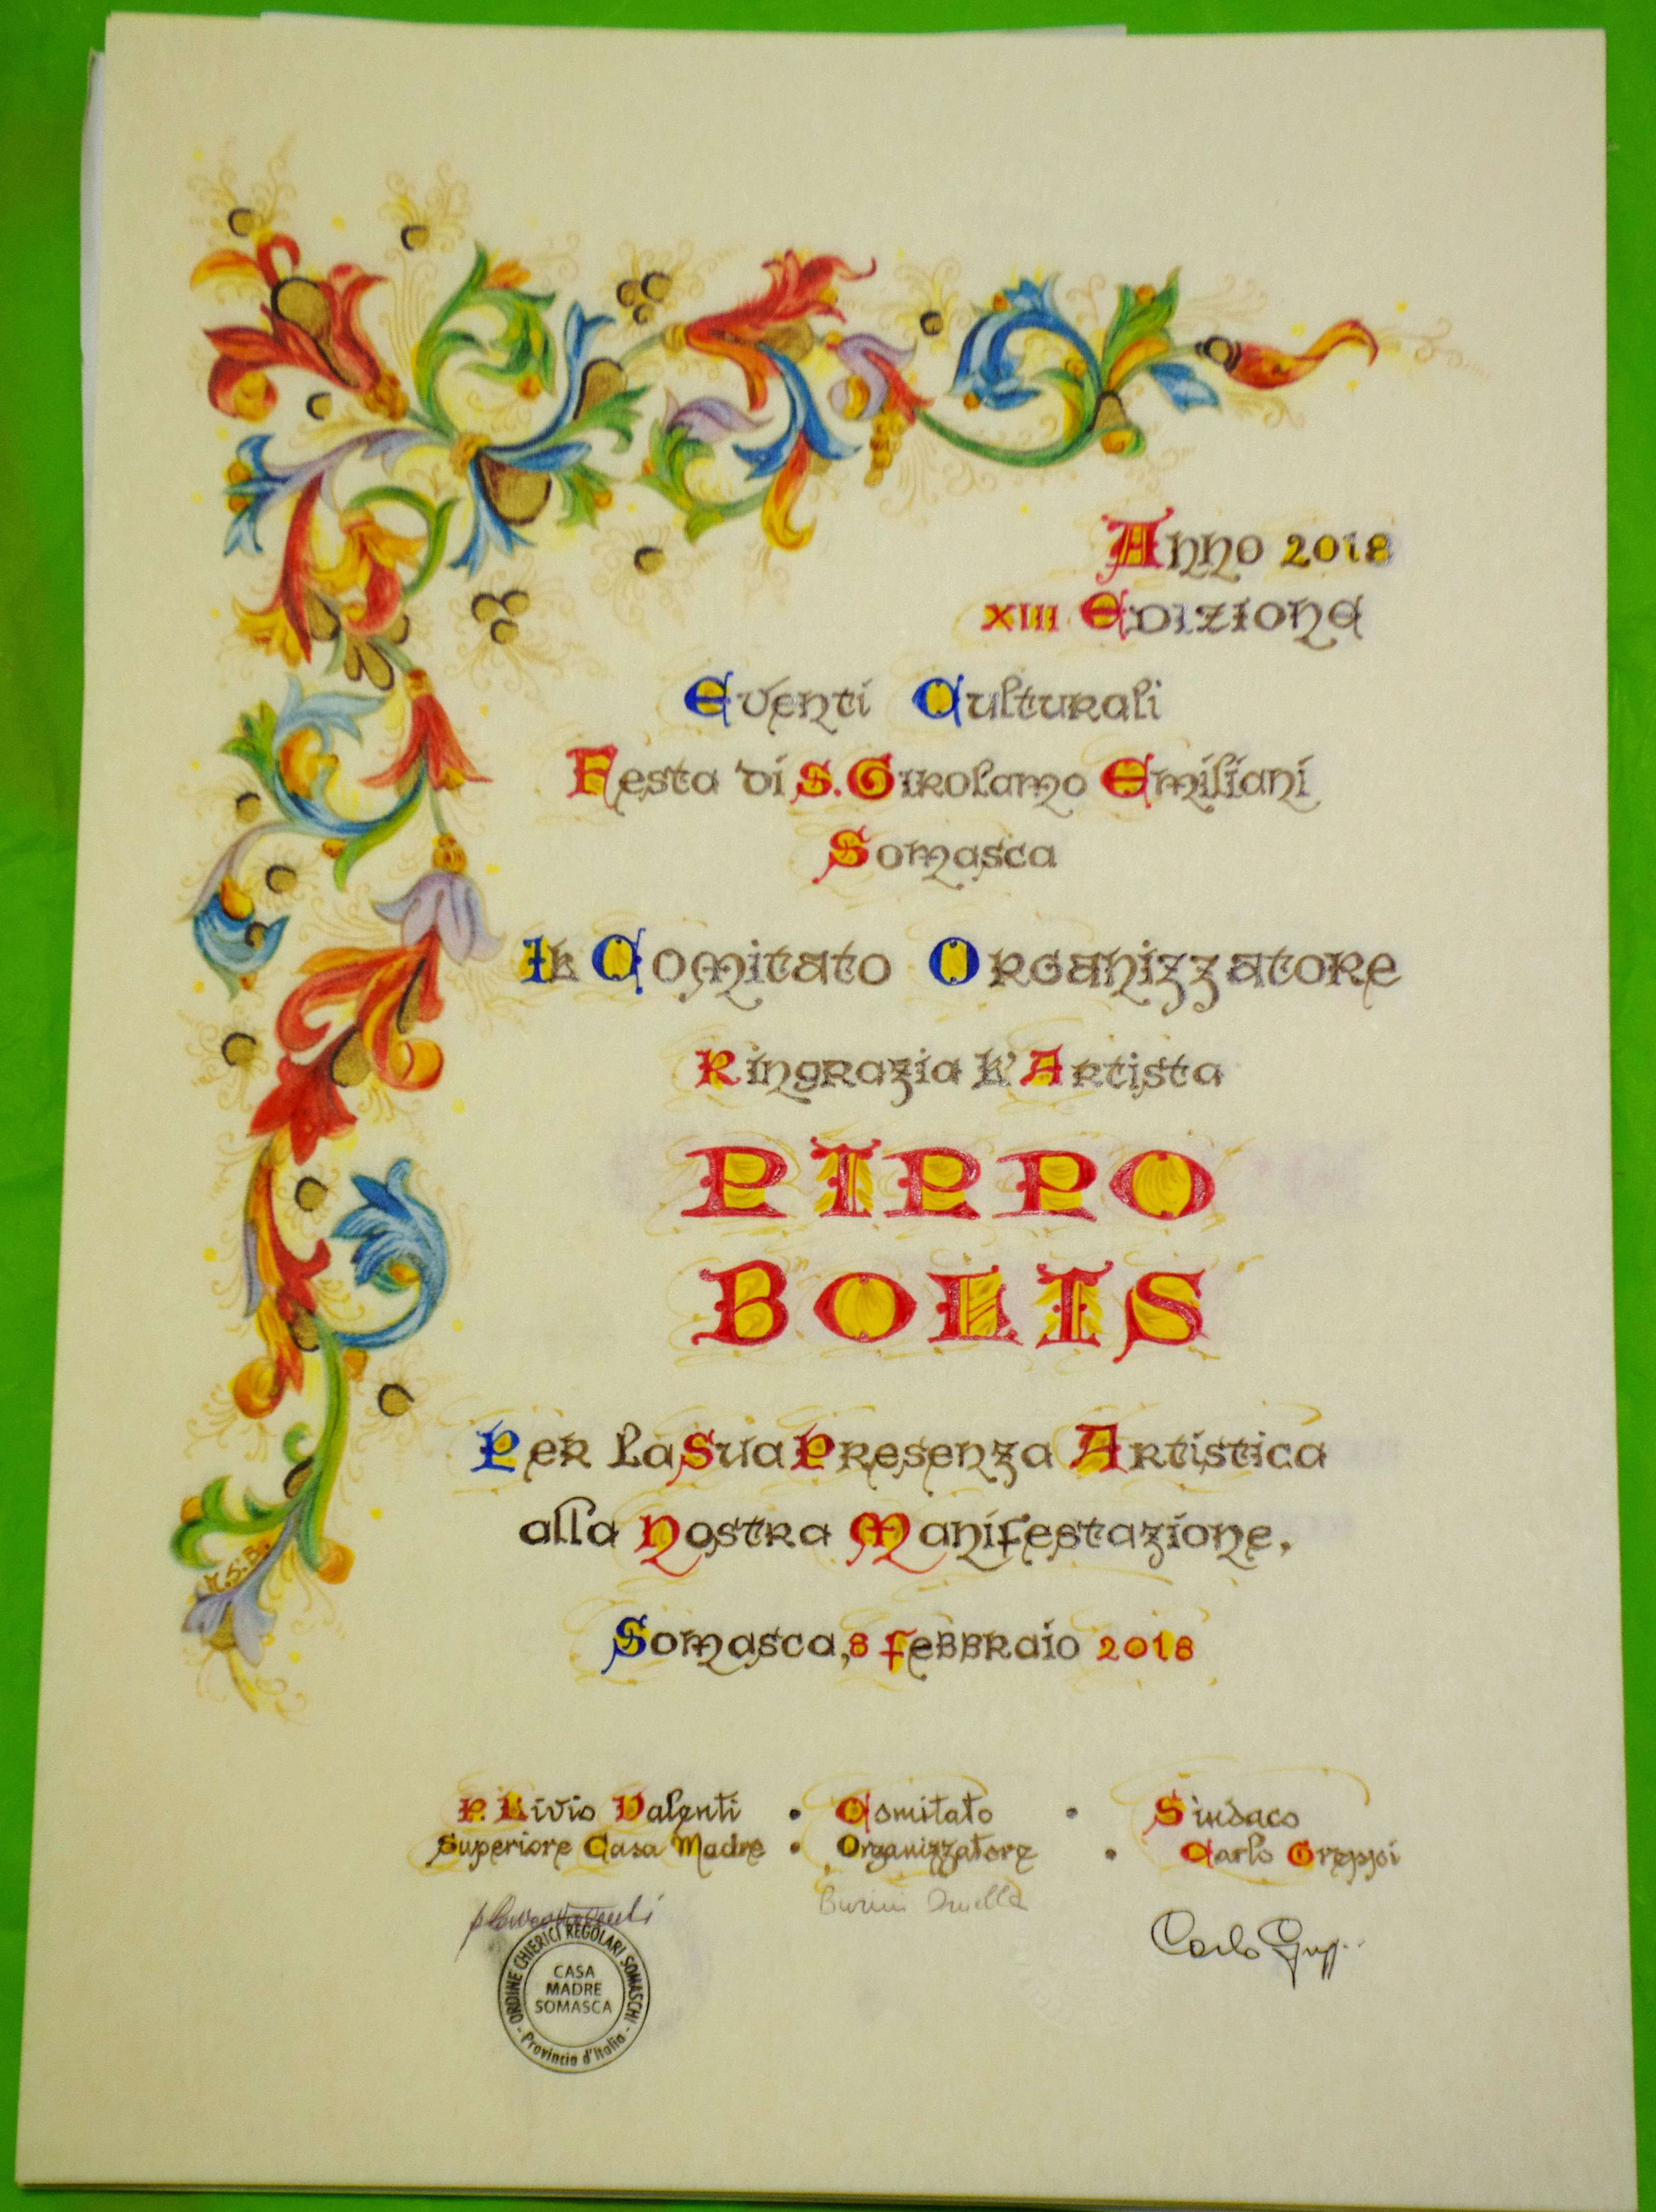 Anno 2018
XIII Edizione
Eventi Culturali
Festa di S. Girolamo Emiliani
Somasca
Il Comitato Organizzatore
Ringrazia l'Artista
PIPPO
BOLIS
Per la Sua Presenza Artistica
alla Nostra Manifestazione.
Somasca, 8 febbraio 2018
M.S.B.
P. Livio Valenti • Comitato • Sindaco
Superiore Casa Madre • Organizzatore • Carlo Greppi
Burini Ornella
Carlo Grepp
ORDINE CHIERICI REGOLARI SOMASCHI
CASA
MADRE
SOMASCA
- Provincia d'Italia -